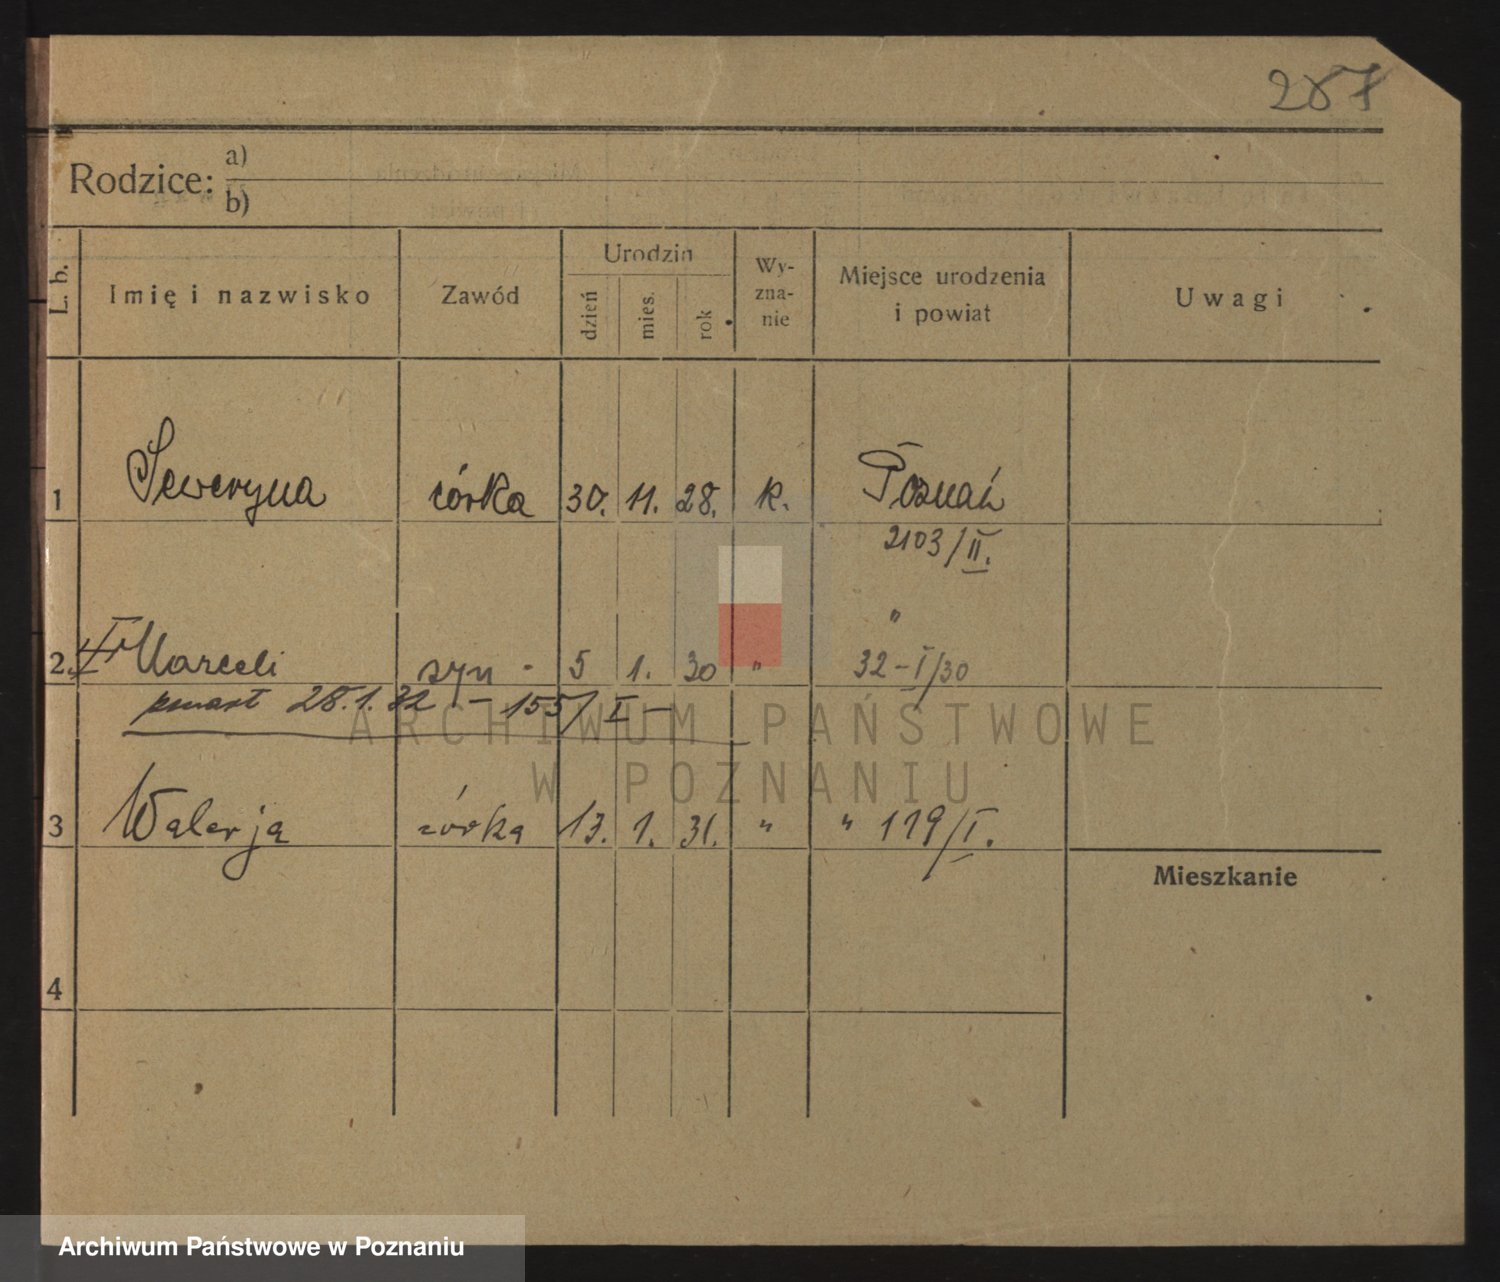 287
Rodzice: a)
b)
L. b. Imię i nazwisko Zawód Urodzin dzień mies. rok Wy-zna-nie Miejsce urodzenia i powiat Uwagi
1 Seweryna córka 30. 11. 28. k. Poznań
2103/II.
"
2. Marceli syn - 5 1. 30 " 32-I/30
zmarł 28.1.32 - 155/I -
3 Walerja córka 13. 1. 31. " " 119/I.
Mieszkanie
4
ARCHIWUM PAŃSTWOWE
W POZNANIU
Archiwum Państwowe w Poznaniu